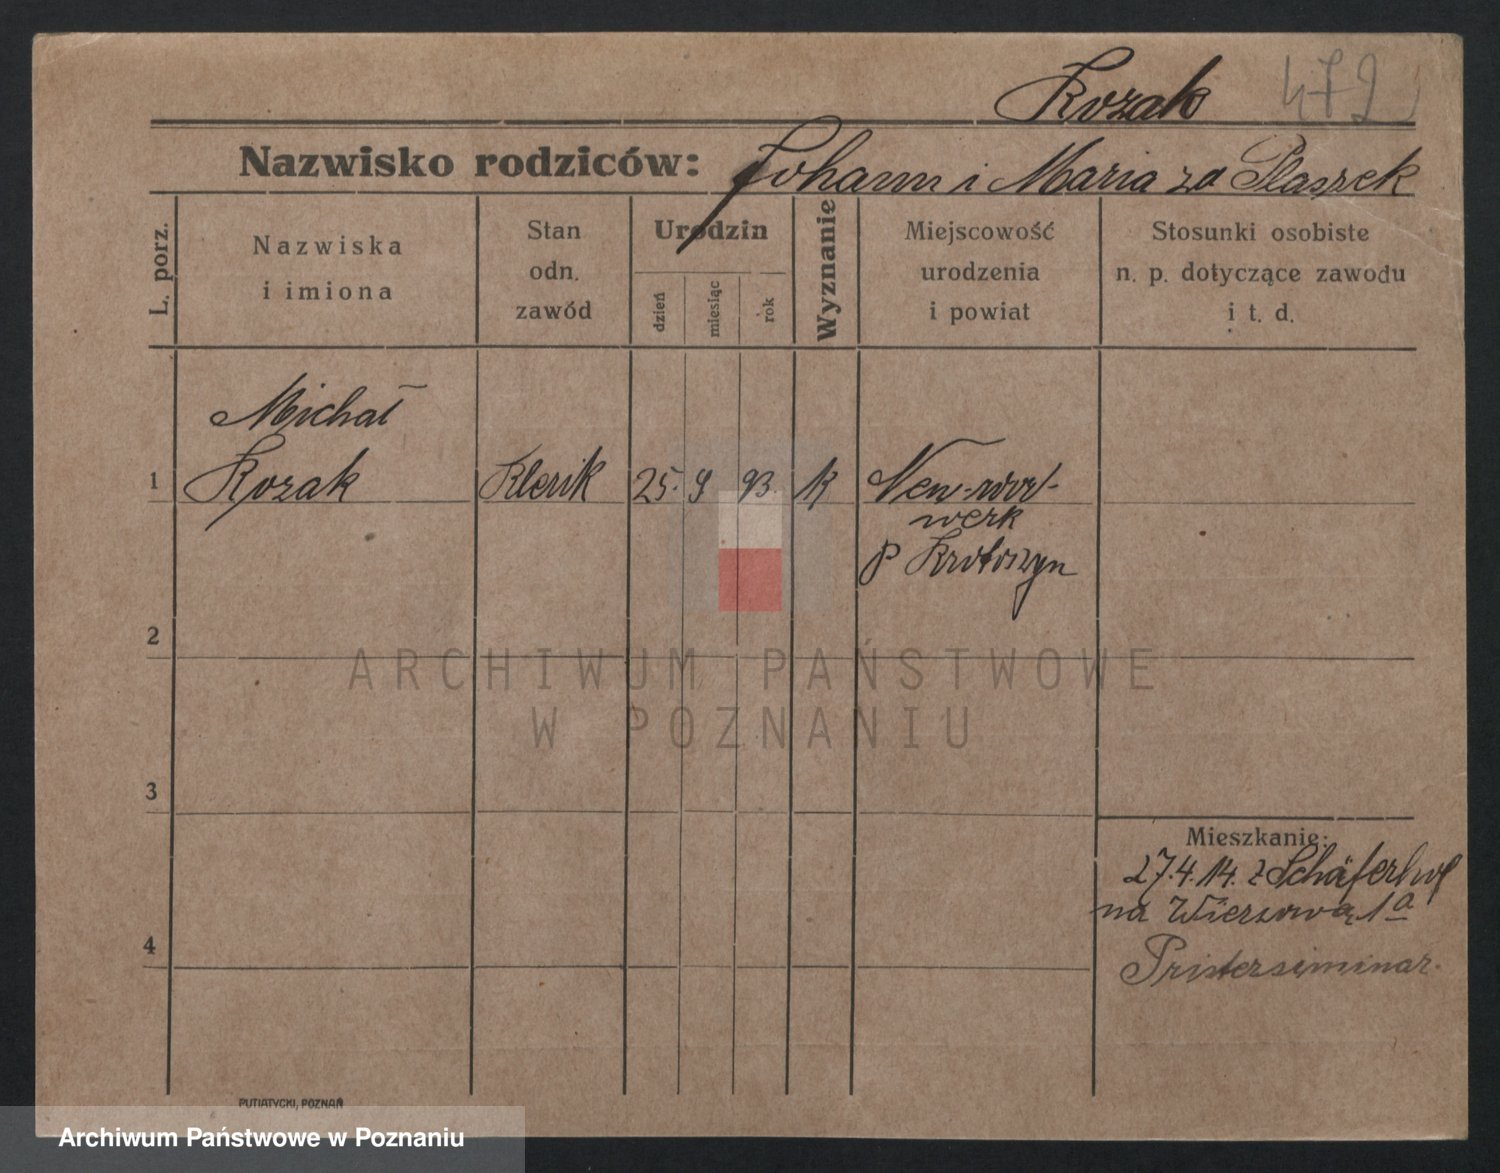 Kozak 472
Nazwisko rodziców: Johann i Maria zd Plaszek
L. porz.
Nazwiska
i imiona
Stan
odn.
zawód
Urodzin
dzień
miesiąc
rok
Wyznanie
Miejscowość
urodzenia
i powiat
Stosunki osobiste
n. p. dotyczące zawodu
i t. d.
Michał
1 Kozak Klerik 25. 9 93. K Neu-vor-
werk
p Krotoszyn
2
ARCHIWUM PAŃSTWOWE
W POZNANIU
3
Mieszkanie:
27.4.14. z
na 1a
4
Pristerseminar.
PUTIATYCKI, POZNAŃ
Archiwum Państwowe w Poznaniu